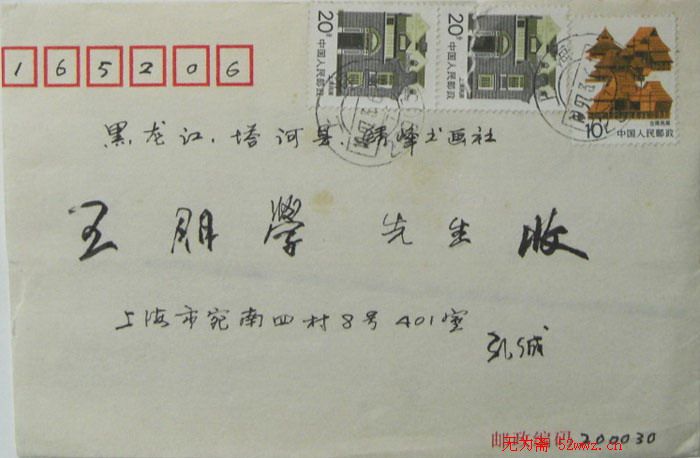 20分 中国人民邮政 上海民居
20分 中国人民邮政 上海民居
10分 中国人民邮政 云南民居
165206
黑龙江.塔河县.靖峰书画社
王朋学 先生 收
上海市宛南四村8号401室
孔诚
邮政编码 200030
无为斋 52wwz.cn